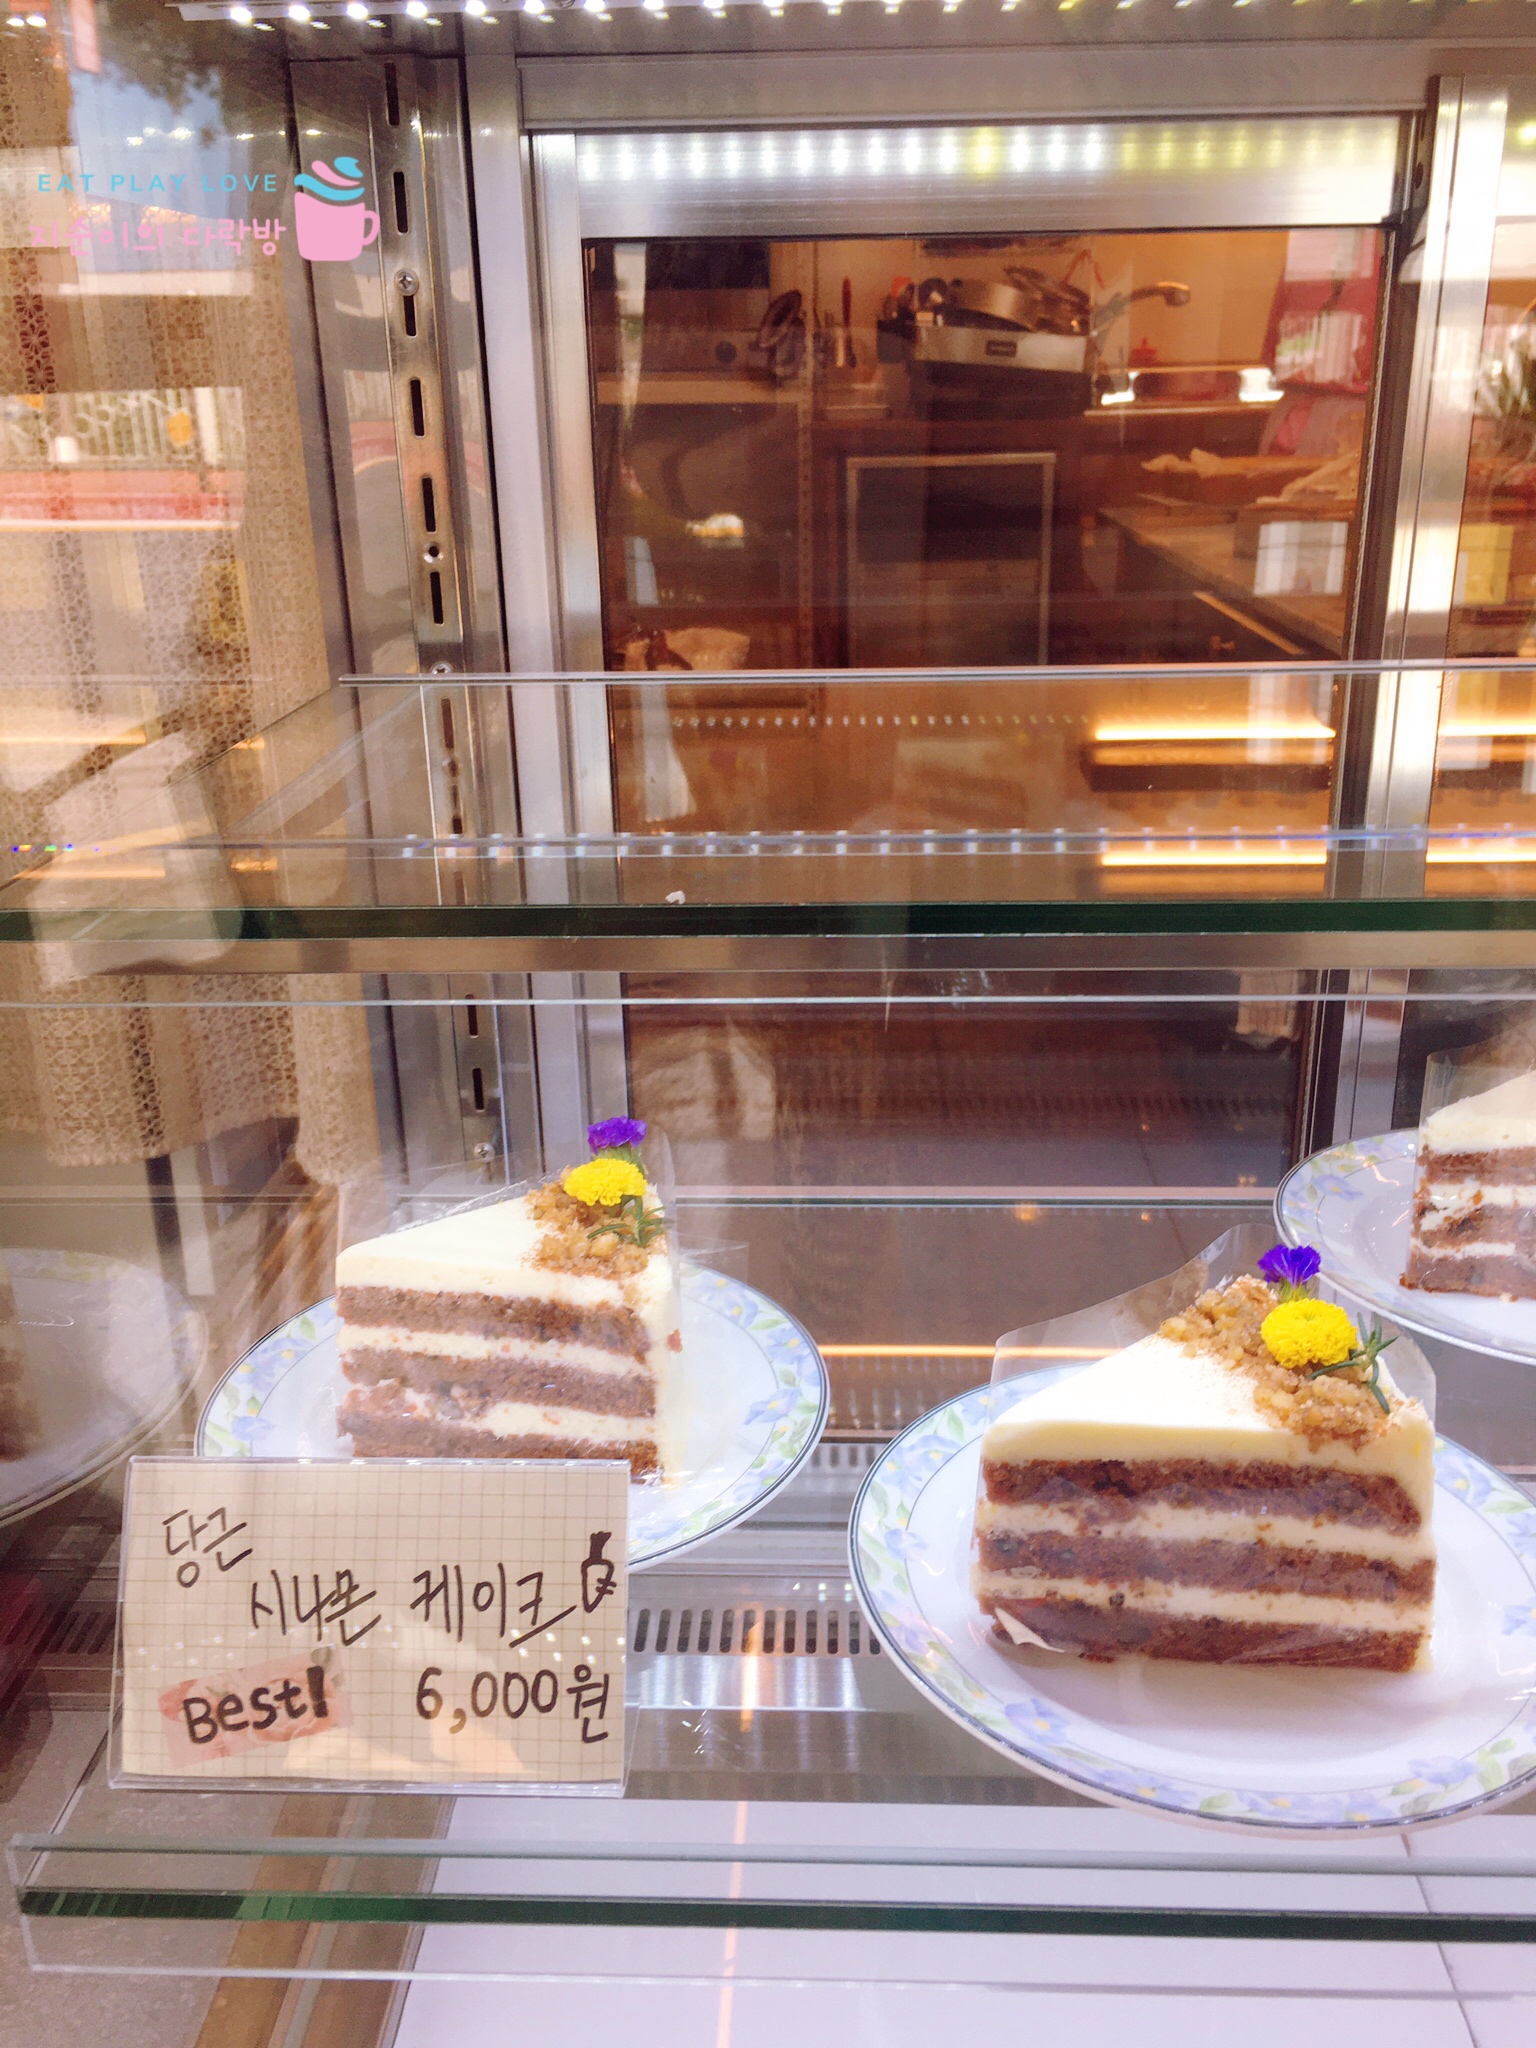 EAT PLAY LOVE
지준이의 다락방
당근
시나몬 케이크
Best! 6,000원